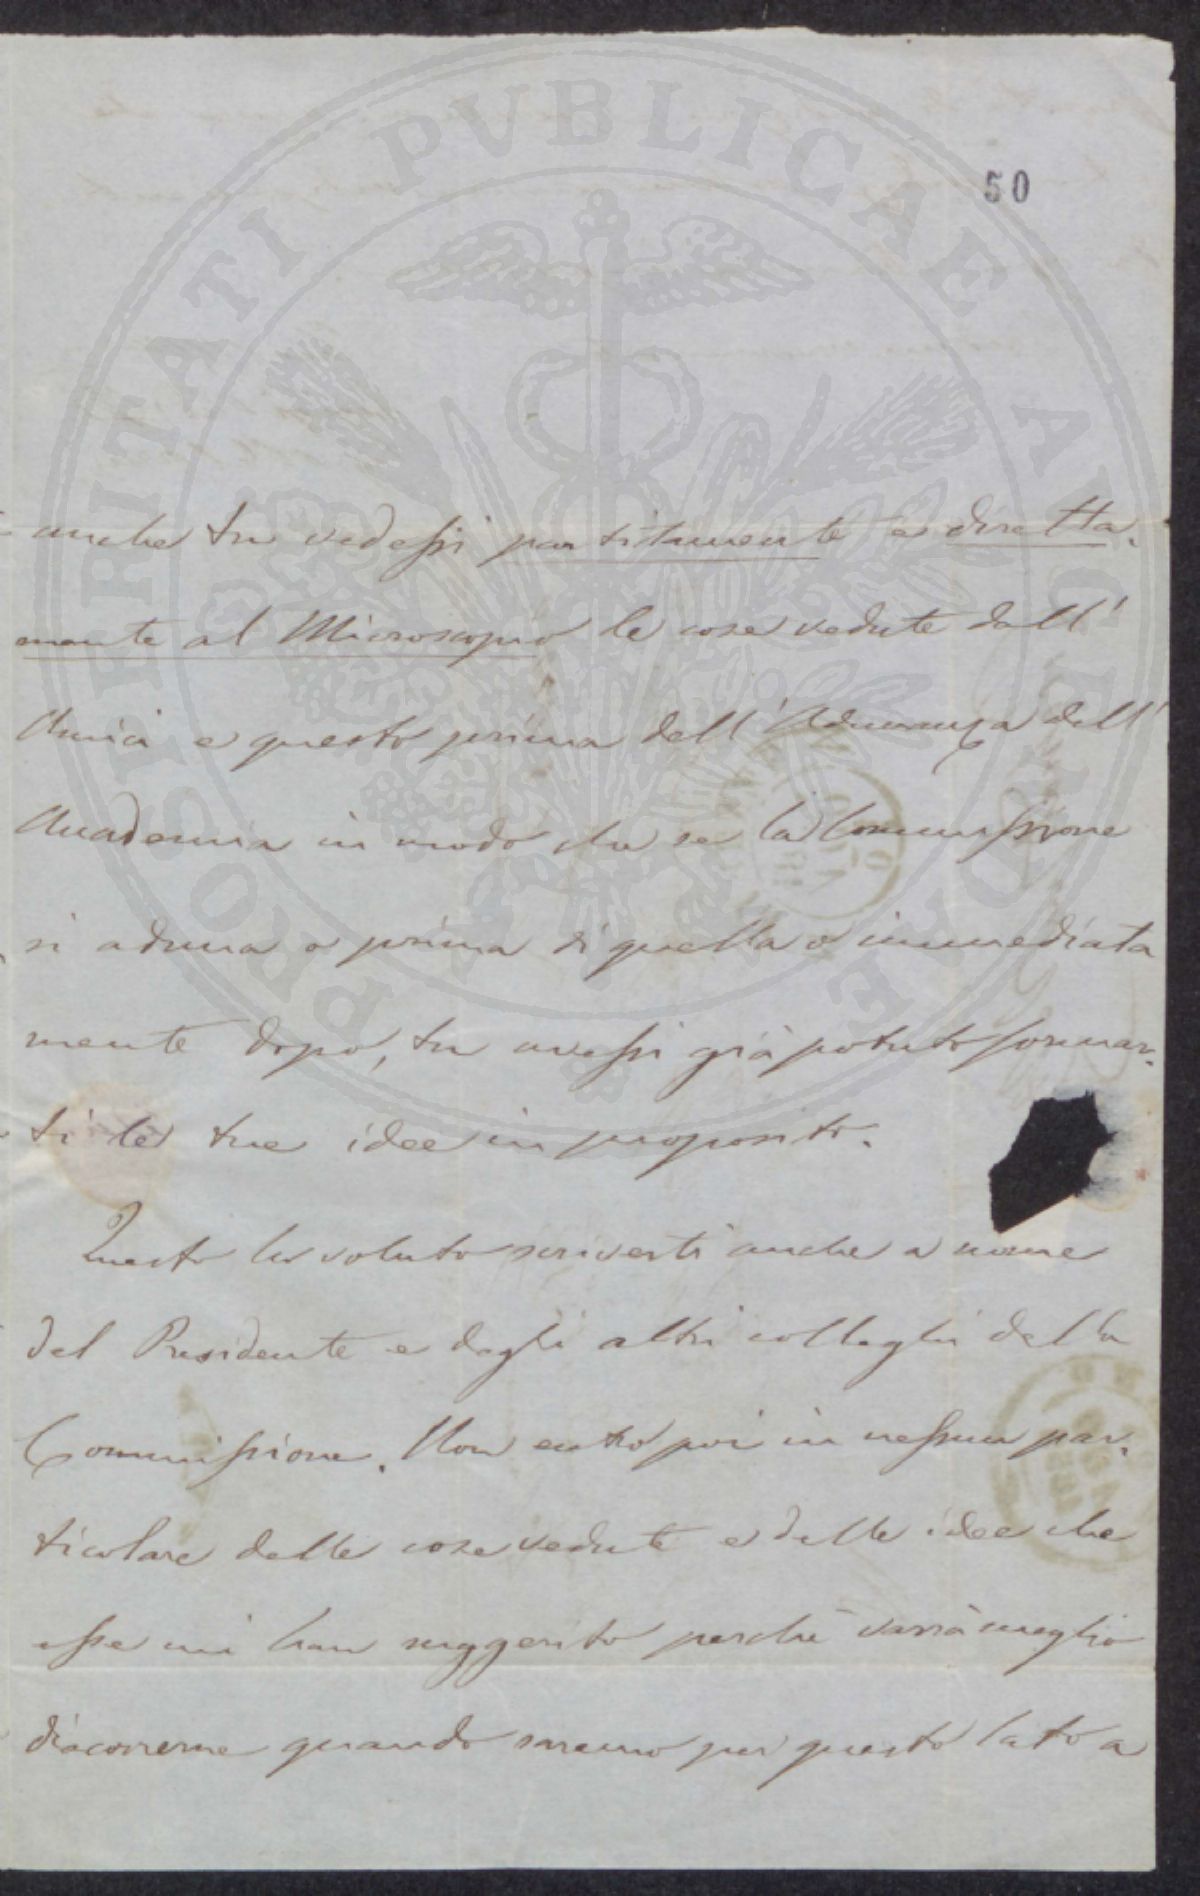 PROSPERITATI PUBLICAE AUGENDAE
50
anche tu vedessi partitamente e diretta-
mente al Microscopio le cose vedute dall'
Amici e questo prima dell'Adunanza dell'
Accademia in modo che se la Commissione
si aduna o prima di quella o immediata
mente dopo, tu avessi già potuto formar-
ti le tue idee in proposito.
Questo ho voluto scriverti anche a nome
del Presidente e degli altri colleghi della
Commissione. Non entro poi in nessun par-
ticolare delle cose vedute e delle idee che
esse mi han suggerito perchè varrà meglio
discorrerne quando saremo per questo lato a